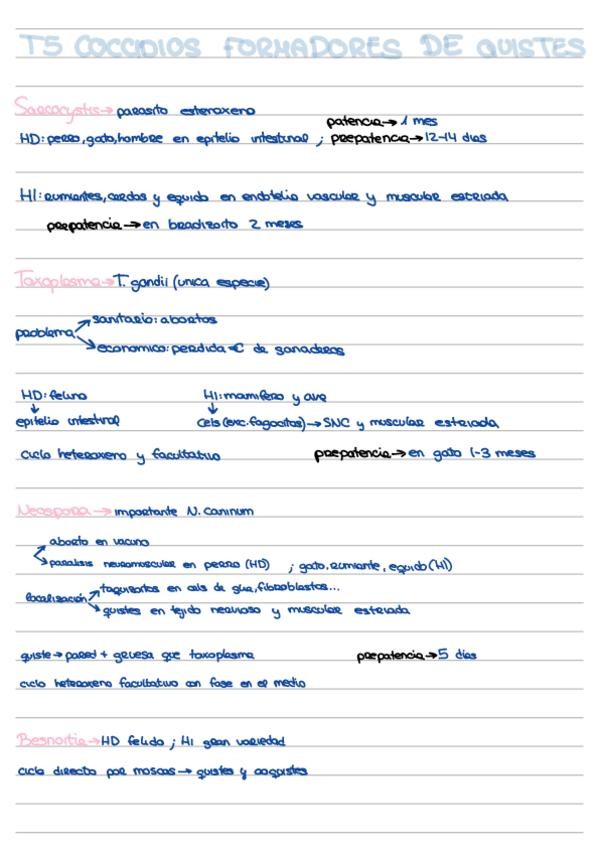 T5 COCCIDIOS FORMADORES DE QUISTES
Sarcocystis → parasito esteroxeno
patencia → 1 mes
HD: perro, gato, hombre en epitelio intestinal ; prepatencia → 12-14 dias
HI: rumiantes, cerdos y equido en endotelio vascular y muscular estriada
prepatencia → en bradizoito 2 meses
Toxoplasma → T. gondii (unica especie)
sanitario: abortos
problema
economico: perdida € de ganaderos
HD: felino HI: mamifero y ave
epitelio intestinal cels (exc. fagocitos) → SNC y muscular estriada
ciclo heteroxeno y facultativo prepatencia → en gato 1-3 meses
Neospora → importante N. caninum
aborto en vacuno
paralisis neuromuscular en perro (HD) ; gato, rumiante, equido (HI)
localización taquizoitos en cels de glia, fibroblastos...
quistes en tejido nervioso y muscular estriada
quiste → pared + gruesa que toxoplasma prepatencia → 5 dias
ciclo heteroxeno facultativo con fase en el medio
Besnoitia → HD felido ; HI gran variedad
ciclo directo por moscas → quistes y ooquistes